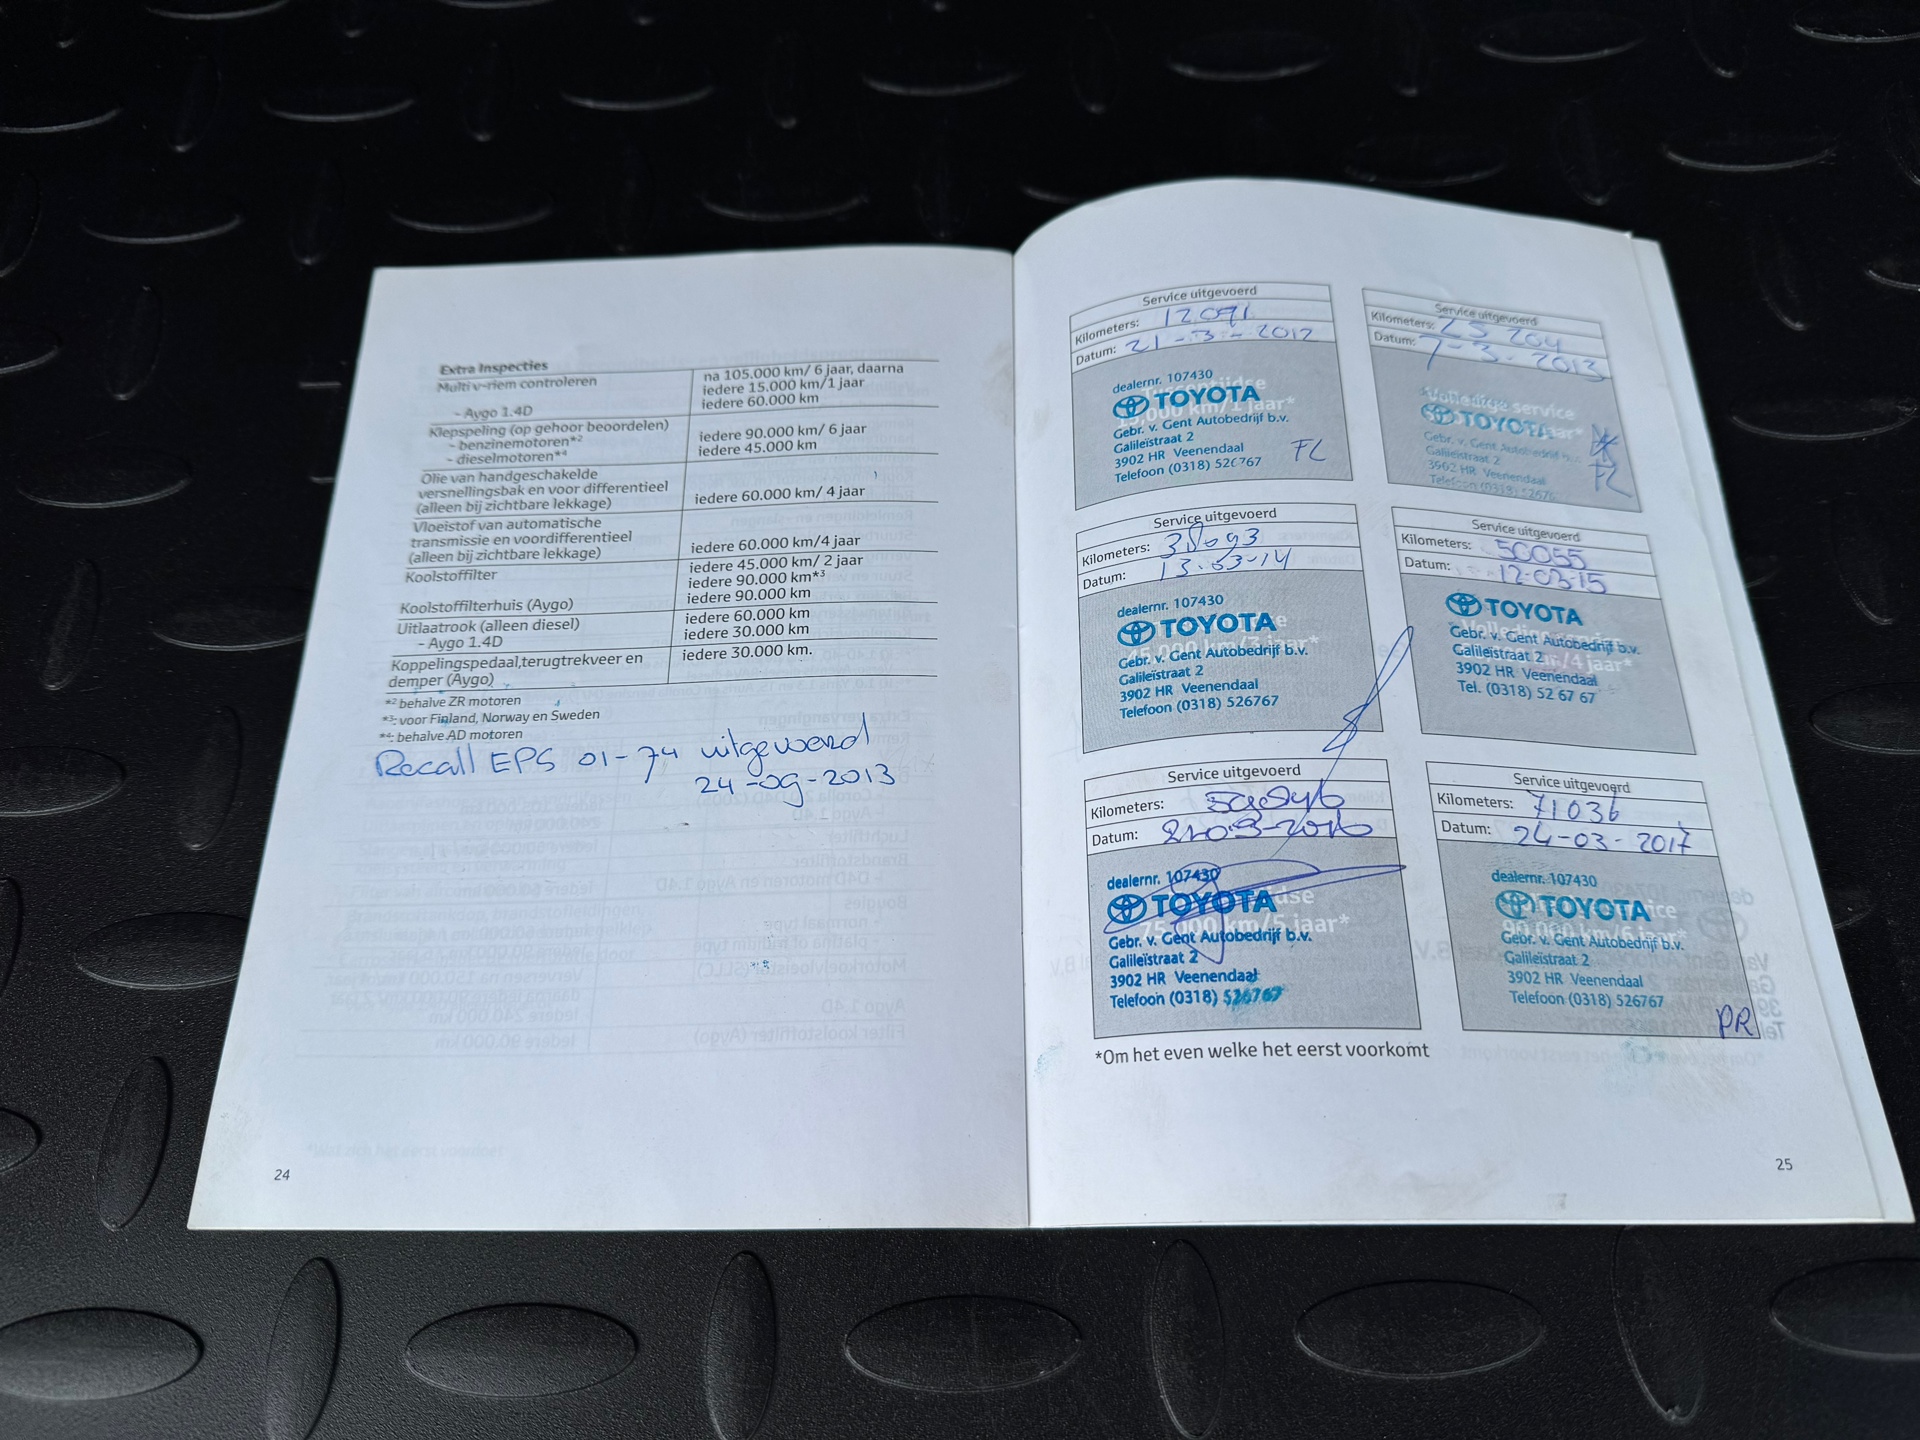 Extra Inspecties
Multi v-riem controleren
na 105.000 km/ 6 jaar, daarna
iedere 15.000 km/1 jaar
- Aygo 1.4D
iedere 60.000 km
Klepspeling (op gehoor beoordelen)
- benzinemotoren*2
iedere 90.000 km/ 6 jaar
- dieselmotoren*4
iedere 45.000 km
Olie van handgeschakelde
versnellingsbak en voor differentieel
(alleen bij zichtbare lekkage)
iedere 60.000 km/ 4 jaar
Vloeistof van automatische
transmissie en voordifferentieel
(alleen bij zichtbare lekkage)
iedere 60.000 km/4 jaar
Koolstoffilter
iedere 45.000 km/ 2 jaar
iedere 90.000 km*3
Koolstoffilterhuis (Aygo)
iedere 90.000 km
Uitlaatrook (alleen diesel)
iedere 60.000 km
- Aygo 1.4D
iedere 30.000 km
Koppelingspedaal,terugtrekveer en
demper (Aygo)
iedere 30.000 km.
*2 behalve ZR motoren
*3: voor Finland, Norway en Sweden
*4: behalve AD motoren
Recall EPS 01-74 uitgevoerd
24-09-2013
24
Service uitgevoerd
Kilometers: 12091
Datum: 21-3-2012
dealernr. 107430
TOYOTA
15,000 km/1 jaar*
Gebr. v. Gent Autobedrijf b.v.
Galileïstraat 2
3902 HR Veenendaal
Telefoon (0318) 526767
FL
Service uitgevoerd
Kilometers: 25 204
Datum: 7-3-2013
Volledige service
TOYOTA
jaar*
Gebr. v. Gent Autobedrijf b.v.
Galileïstraat 2
3902 HR Veenendaal
Telefoon (0318) 52676
FL
Service uitgevoerd
Kilometers: 38093
Datum: 13-03-14
dealernr. 107430
TOYOTA
45,000 km/3 jaar*
Gebr. v. Gent Autobedrijf b.v.
Galileïstraat 2
3902 HR Veenendaal
Telefoon (0318) 526767
Service uitgevoerd
Kilometers: 50055
Datum: 12-03-15
TOYOTA
Gebr. v. Gent Autobedrijf b.v.
/4 jaar*
Galileïstraat 2
3902 HR Veenendaal
Tel. (0318) 52 67 67
Service uitgevoerd
Kilometers:
Datum:
dealernr. 107430
TOYOTA
75,000 km/5 jaar*
Gebr. v. Gent Autobedrijf b.v.
Galileïstraat 2
3902 HR Veenendaal
Telefoon (0318) 526767
Service uitgevoerd
Kilometers: 71036
Datum: 24-03-2017
dealernr. 107430
TOYOTA
90,000 km/6 jaar*
Gebr. v. Gent Autobedrijf b.v.
Galileïstraat 2
3902 HR Veenendaal
Telefoon (0318) 526767
PR
*Om het even welke het eerst voorkomt
25